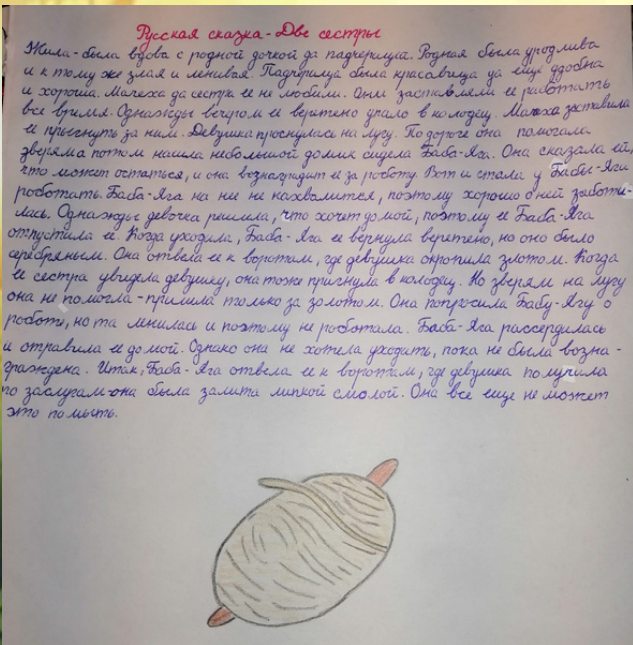 Русская сказка - Две сестры
Жила-была вдова с родной дочкой да падчерицей. Родная была уродлива
и к тому же злая и ленивая. Падчерица была красавица да еще удобна
и хороша. Мачеха да сестра ее не любили. Они заставляли ее работать
все времия. Однажды вечуром ее веретено упало в колодец. Мачеха заставила
ее прыгнуть за ним. Девушка проснулась на лугу. По дороге она помогала
зверяма потом нашла небольшой домик сидела Баба-Яга. Она сказала ей,
что может остаться, и она вознаградит её за роботу. Вот и стала у Бабы-Яги
роботать. Баба-Яга на нее не нахвалится, поэтому хорошо о ней заботи-
лась. Однажды девочка решила, что хочет домой, поэтому ее Баба-Яга
отпустила ее. Когда уходила, Баба-Яга ее вернула веретено, но оно было
серебряным. Она отвела ее к воротам, где девушка окропила злотом. Когда
ее сестра увидела девушку, она тоже пригнула в колодец. Но зверям на лугу
она не помогла - пришла только за золотом. Она попросила Бабу-Ягу о
роботи, но та лнилась и поэтому не роботала. Баба-Яга рассердилась
и отравила ее домой. Однако она не хотела уходить, пока не была возна-
граждена. Итак, Баба-Яга отвела ее к воротам, где девушка получила
по заслугам-она была залита липкой смолой. Она все еще не может
это помыть.